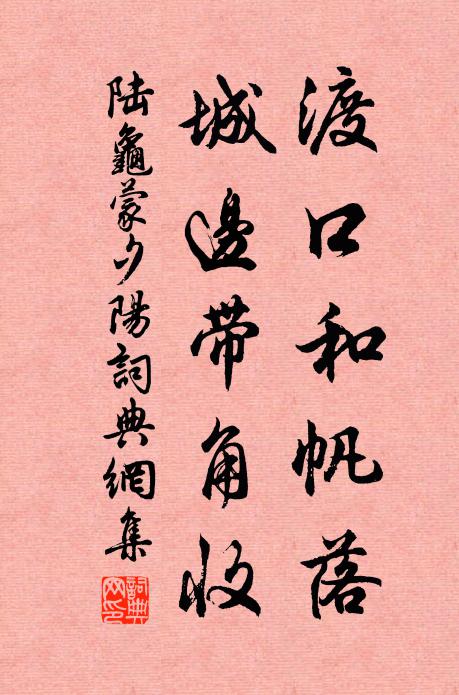 渡口和帆落
城邊帶角收
陸龜蒙夕陽詞典網集
詞典網印